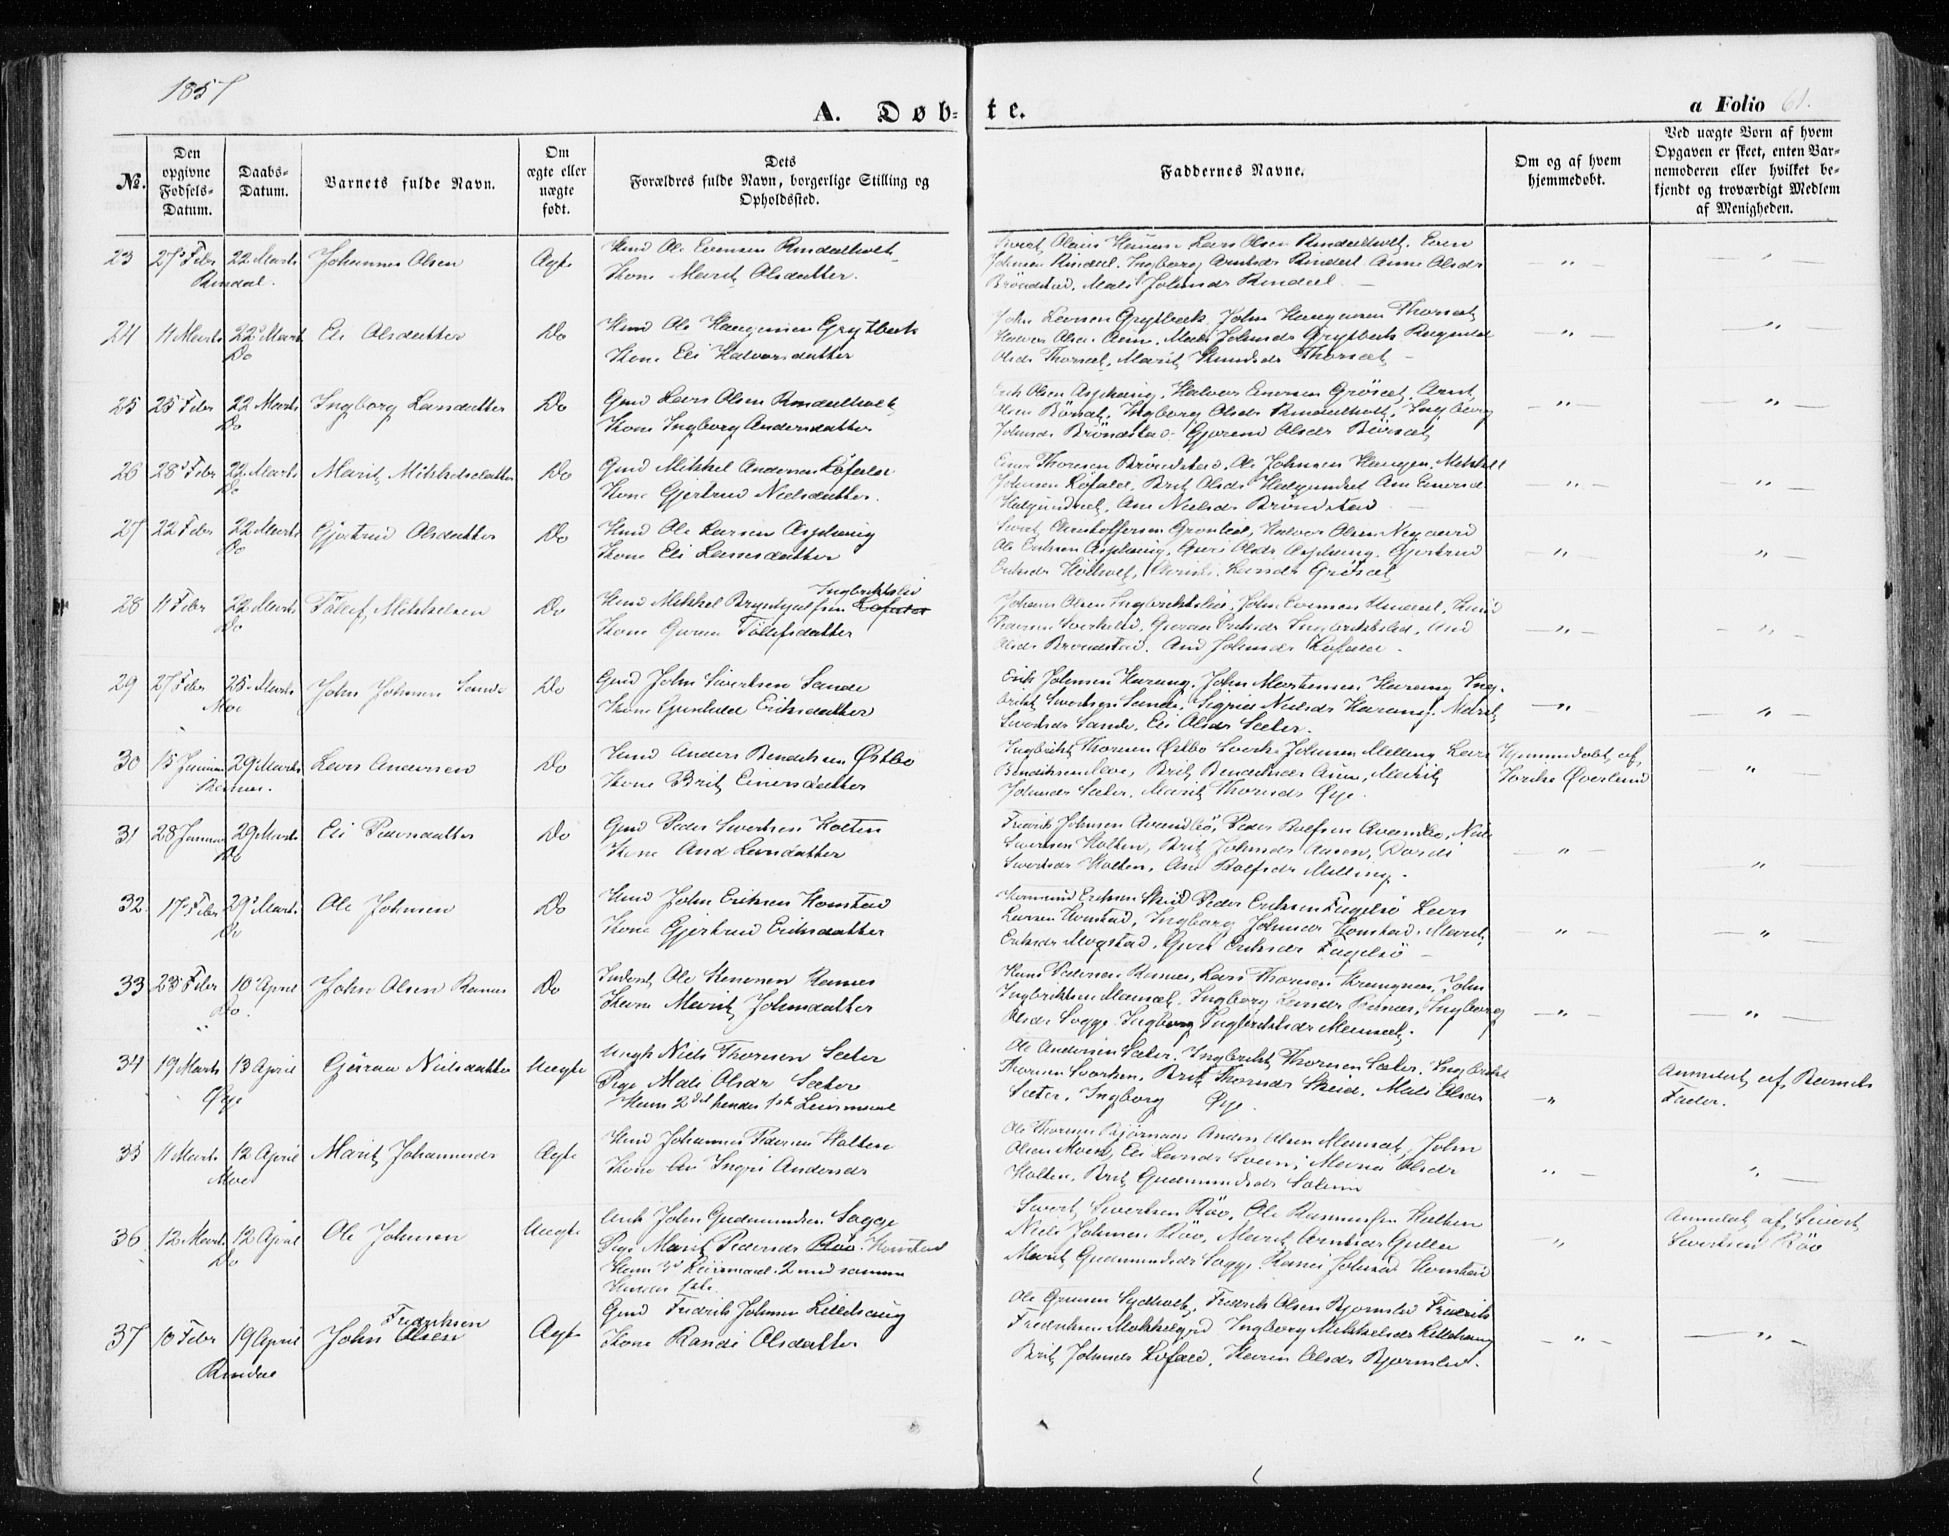 1857
A. Døb- te.
a Folio 61.
No.
Den opgivne Fødsels-Datum.
Daabs-Datum.
Barnets fulde Navn.
Om ægte eller uægte født.
Dets Forældres fulde Navn, borgerlige Stilling og Opholdssted.
Faddernes Navne.
Om og af hvem hjemmedøbt.
Ved uægte Børn af hvem Opgaven er skeet, enten Barnemoderen eller hvilket bekjendt og troværdigt Medlem af Menigheden.
23 27 Febr 22 Marts Johannes Olsen Ægte Huusmd Ole Evensen Rindalholt
Rindal. Kone Marit Olsdatter.
Sivert Olsen Lars Olsen Rindalholt. Even
Johnsen Rindal. Ingborg Arntsdr Rindal Anne Olsdr
Brøndstad. Mali Johnsdr Rindal
24 11 Marts 22 Marts Eli Olsdatter Do Huusmd Ole Haugensen Grytbak
Do Kone Eli Halvorsdatter
John Larsen Grytbak, John Thorsæt
Halvor Olsen Aune, Mali Johnsdr Grytbak Ragnild
Olsdr Thorsæt, Marit Knudsdr Thorsæt
25 25 Febr 22 Marts Ingborg Larsdatter Do Gmd Lars Olsen Rindalholt
Do Kone Ingborg Andersdatter
Erik Olsen Asphaug, Halvor Einersen Grösæt, Arnt
Olsen Börsæt, Ingborg Olsdr Rindalholt, Ingborg
Johnsdr Bröndstad. Gjøren Olsdr Börsæt
26 28 Febr 22 Marts Marit Mikkelsdatter Do Gmd Mikkel Andersen Løfald
Do Kone Gjertrud Nielsdatter.
Einer Thoresen Bröndstad, Ole Johnsen Haugen, Mikkel
Johnsen Løfald, Brit Olsdr Helgundsæt Ane Einersd
Helgundsæt, Ane Nielsdr Bröndstad
27 22 Febr 22 Marts Gjertrud Olsdatter Do Huusmd Ole Larsen Asphaug
Do Kone Eli Larsdatter
Sivert Christoffersen Grønlid, Halvor Olsen Nygaard
Ole Eriksen Asphaug, Guri Olsdr Asphaug, Gjertrud
Eriksdr Holthalt, Larsdr Grösæt
28 11 Febr 22 Marts Töllef Mikkelsen Do Huusmd Mikkel Bryngelsen Løfald Ingbrichtslid
Do Kone Guren Töllefsdatter
Johans Olsen Ingbrichtslid, John Evensen Rindal, Knud
Ingbrichtslid, And
Olsdr Brøndstad. And Johnsdr Løfald.
29 27 Febr 25 Marts John Johnsen Sande Do Gmd John Sivertsen Sande
Moe Kone Gunhild Eriksdatter
Erik Johnsen Karang, John Mortensen Karang Ing-
bricht Sivertsen Sande, Sigrid Nielsdr Karang, Marit
Sivertsdr Sande, Eli Olsdr Sæter.
30 15 Januar 29 Marts Lars Andersen Do Huusmd Anders Bendiksen Østbø
Ranes. Kone Brit Einersdatter
Ingbricht Thoresen Østbø Sverke Johnsen Melling Lars
Bendiksen Moe, Brit Bendiksdr Aune, Marit
Johnsdr Sæter. Marit Thoresdr Øye.
Hjemmedøbt af
Sverke Øverland
31 28 Januar 29 Marts Eli Pedersdatter Do Gmd Peder Sivertsen Holten
Do Kone And Larsdatter
Fredrik Johnsen Qvandbø, Peder Rolfsen Qvandbø, Niels
Sivertsen Holten, Brit Johnsdr Aasen, Dordi
Sivertsdr Holten, Ane Rolfsdr Melling.
32 17 Febr 29 Marts Ole Johnsen Do Huusmd John Eriksen Honstad
Do Kone Gjertrud Eriksdatter
Eriksen Skeid Peder Eriksen Fugelsø Lars
Larsen Honstad, Ingborg Johnsdr Honstad, Marit
Eriksdr Mogstad. Guri Eriksdr Fugelsø
33 23 Febr 10 April John Olsen Ranes Do Inderst. Ole Simonsen Ranes
Do. Kone Marit Johnsdatter
Hans Pedersen Ranes, Lars Thoresen Kramgnes, John
Ingbrichtsen Mausæt. Ingborg Larsdr Ranes, Ingborg
Olsdr Sogge. Ingborg Ingbrichtsdr Mausæt.
34 19 Marts 13 April Gjuraa Nielsdatter Uægte Ungk Niels Thoresen Sæter
Øye Pige Mali Olsdr Sæter
Hans 2det hendes 1ste Leiermaal
Ole Andersen Sæter. Ingbricht Thoresen Sæter. Ingbricht
Thoresen, Brit Thoresdr Skeid, Mali Olsdr
Sæter, Ingborg Øye.
Anmeldt af Barnets
Fader.
35 11 Marts 12 April Marit Johannesdr Ægte Huusmd Johannes Pedersen Holten
Moe Kone An Ingri Andersdr
Ole Thoresen Bjørnaas Anders Olsen Mausæt, John
Olsen Moen, Eli Larsdr, Maria Olsdr
Holten, Brit Gudmundsdr Solem
36 12 Marts 12 April Ole Johnsen Uægte Unk John Gudmundsen Sogge
Do Pige Marit Pedersdr Röv. Honstad
Hans 3d Leiermaal. 2 med samme
Hendes 1ste.
Sivert Sivertsen Röv, Ole Rasmussen Holten
Niels Johnsen Röv, Marit Arntsdr Gulla
Marit Gudmundsdr Sogge. Ranei Johnsdr Honstad
Anmeldt af Sivert
Sivertsen Röv
37 10 Febr 19 April John Olsen Fredriksen Ægte Gmd Fredrik Johnsen Lillehaug
Rindal Kone Randi Olsdatter
Ole Sydholt, Fredrik Olsen Bjørnlid Fredrik
Fredriksen Mokkelgrd Ingborg Mikkelsdr Lillehaug
Brit Johnsdr Løfald, Karen Olsdr Bjørnlid.